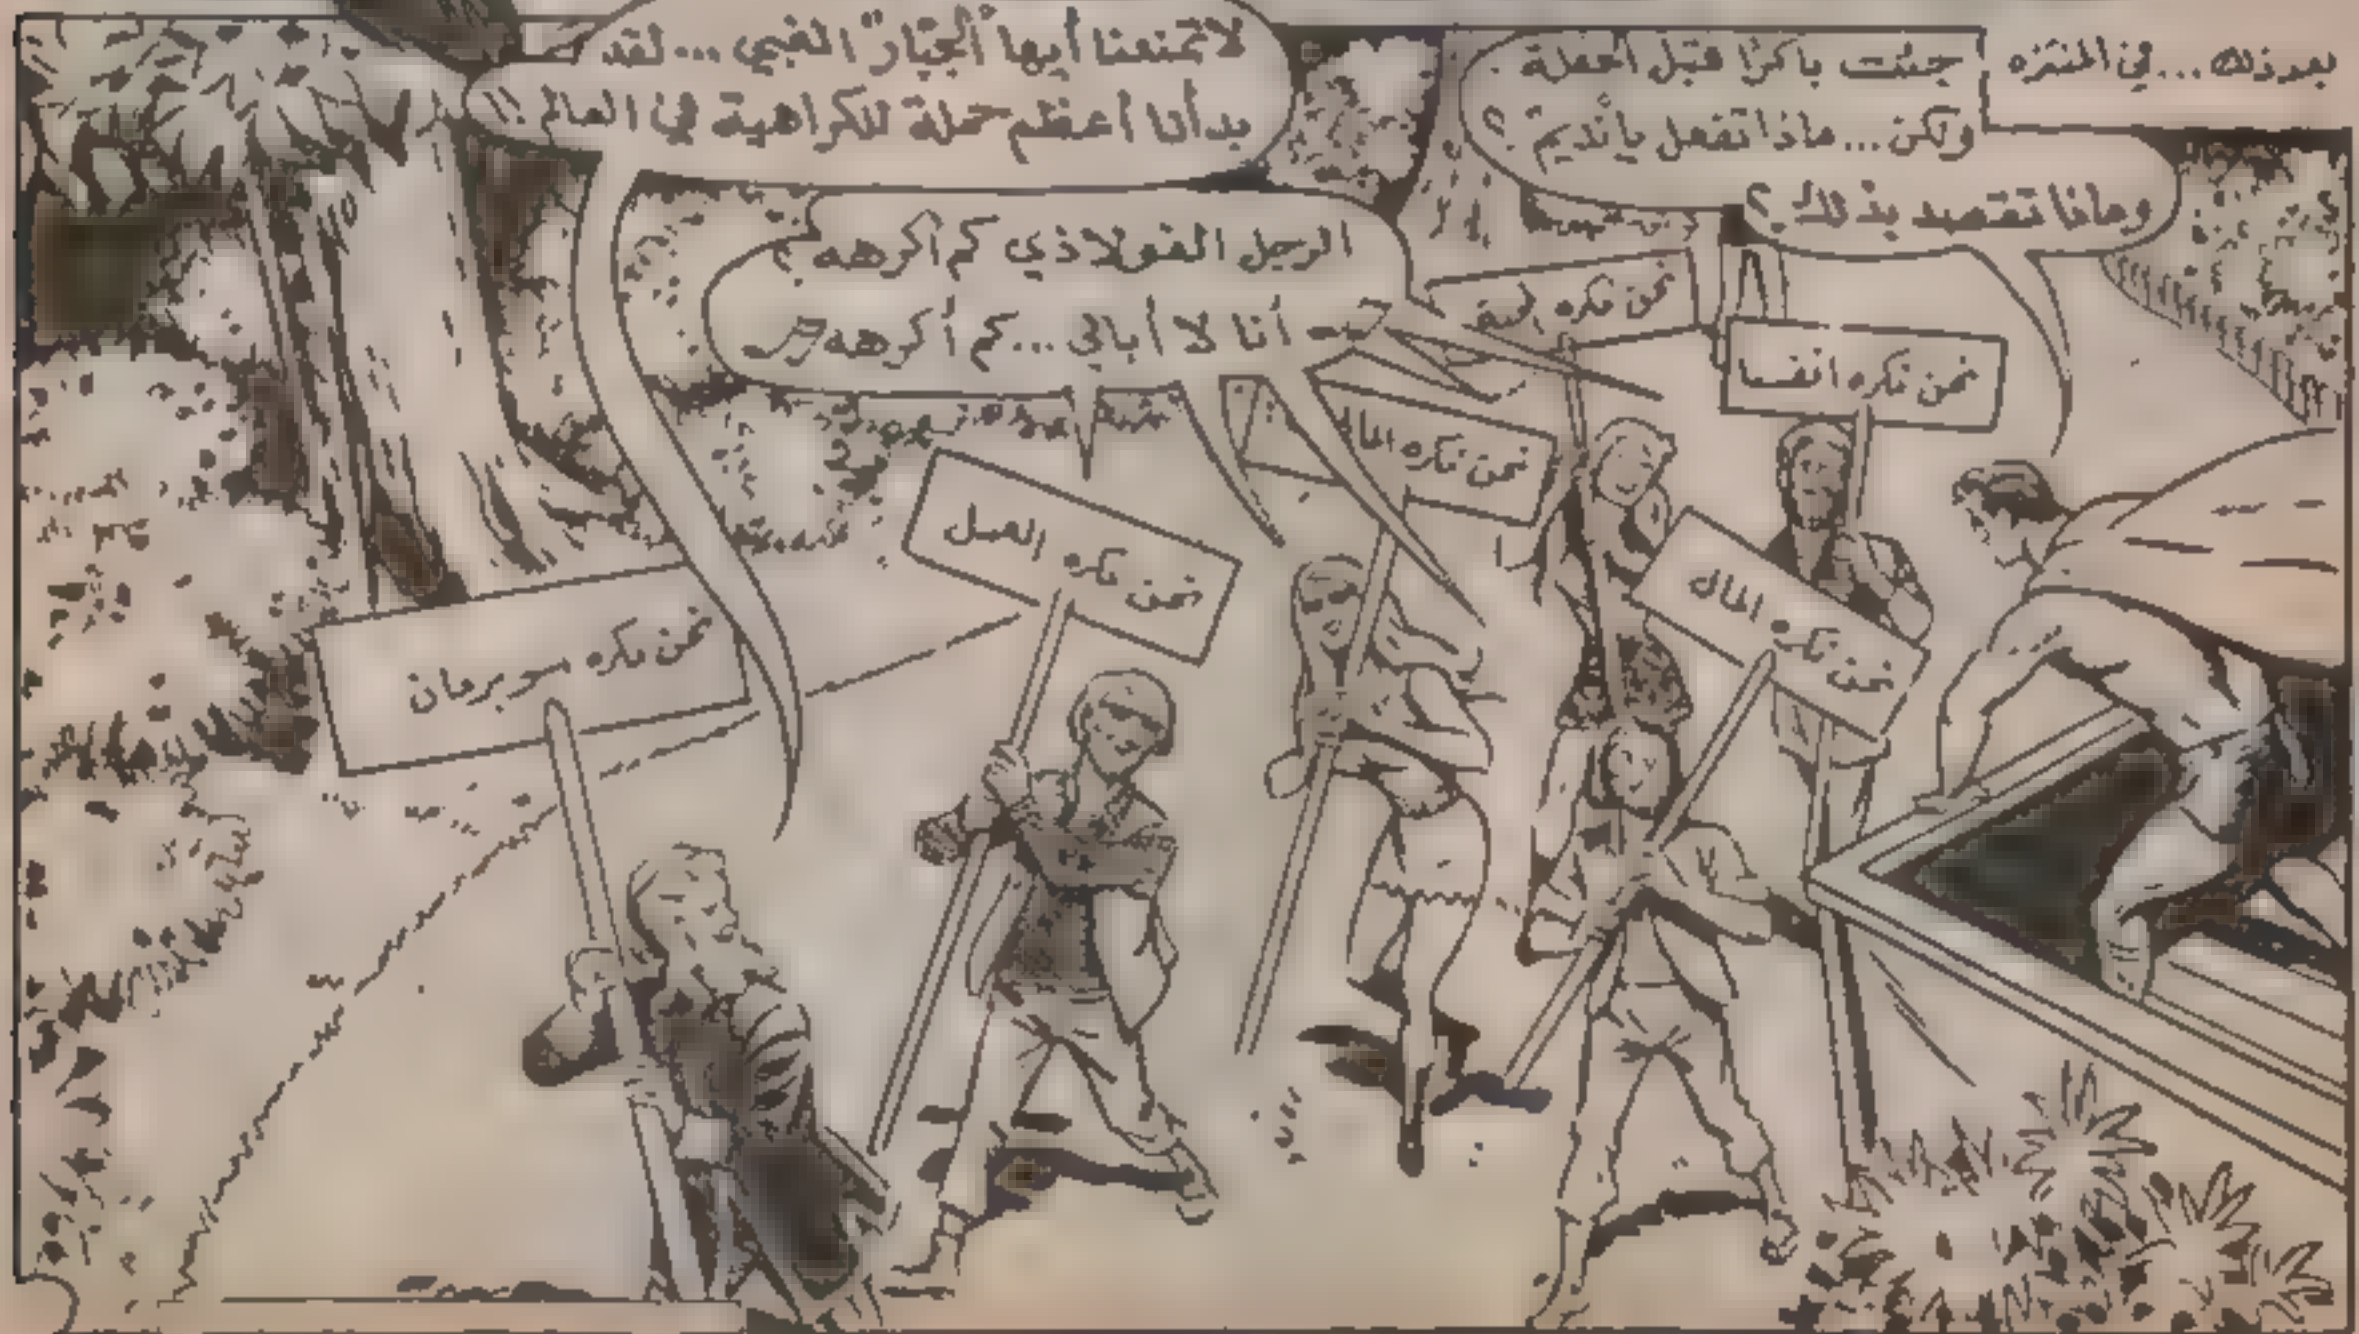 بعد ذلك... في المنتزه
جئت باكرًا قبل الحفلة
ولكن... ماذا تفعل يا نديم؟
وماذا تقصد بذلك؟
لا تمنعنا أيها الجبّار الغبي... لقد
بدأنا أعظم حملة للكراهية في العالم!!
الرجل الفولاذي كم أكرهه؟
أنا لا أبالي... كم أكرهه
نحن نكره
نحن نكره انفسنا
نحن نكره المال
نحن نكره العمل
نحن نكره المال
نحن نكره سوبرمان